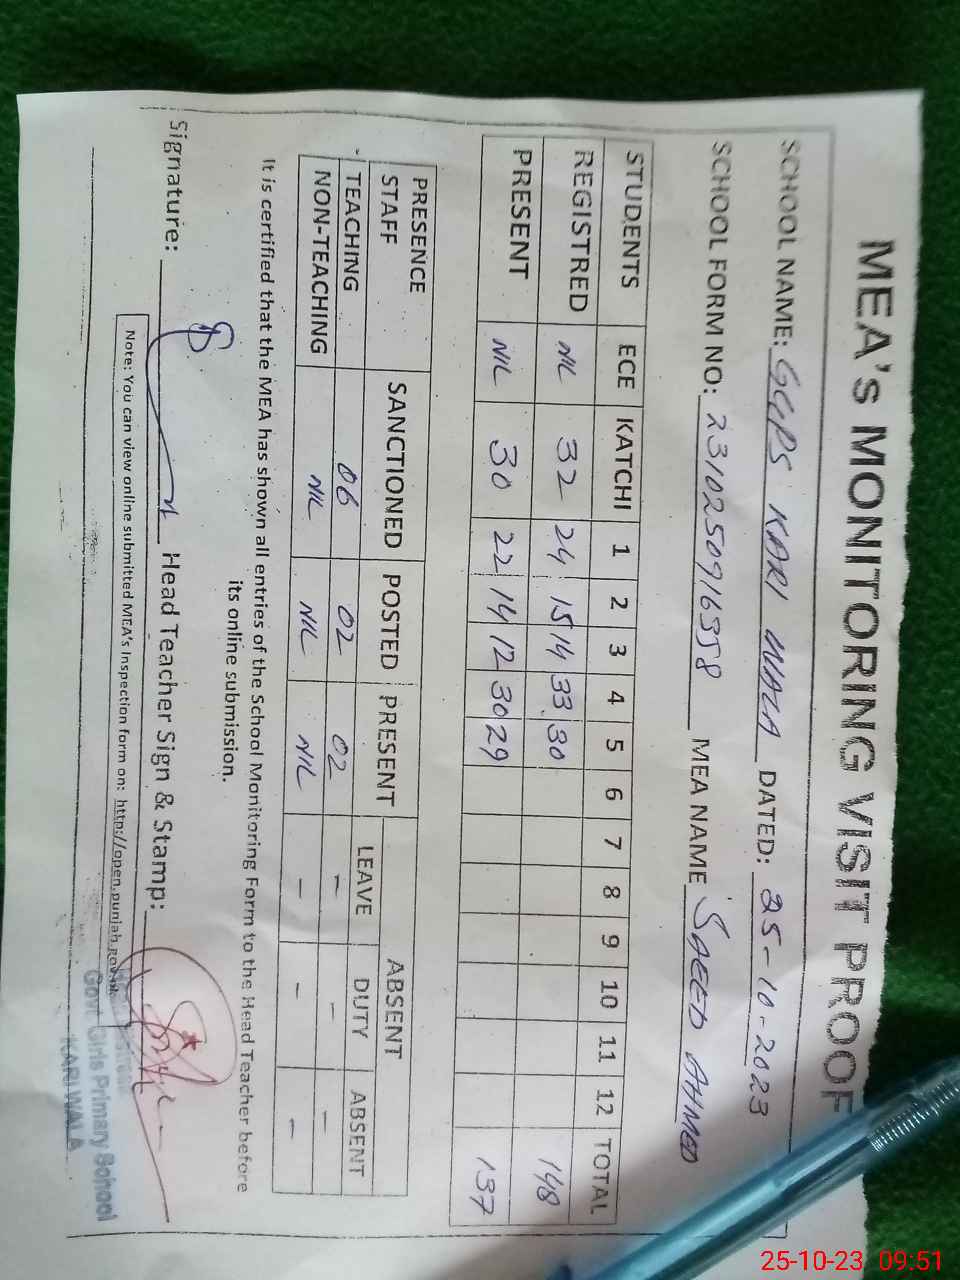 MEA's MONITORING VISIT PROOF
SCHOOL NAME: GGPS KARI WALA DATED: 25-10-2023
SCHOOL FORM NO: 2310250916358 MEA NAME SAEED AHMED
STUDENTS ECE KATCHI 1 2 3 4 5 6 7 8 9 10 11 12 TOTAL
REGISTRED NIL 32 24 15 14 33 30 148
PRESENT NIL 30 22 14 12 30 29 137
PRESENCE STAFF SANCTIONED POSTED PRESENT ABSENT
LEAVE DUTY ABSENT
TEACHING 06 02 02 - - -
NON-TEACHING NIL NIL NIL - - -
It is certified that the MEA has shown all entries of the School Monitoring Form to the Head Teacher before
its online submission.
Signature: Head Teacher Sign & Stamp:
Note: You can view online submitted MEA's Inspection form on: http://open.punjab.gov.pk
Govt. Girls Primary School
KARI WALA
25-10-23 09:51